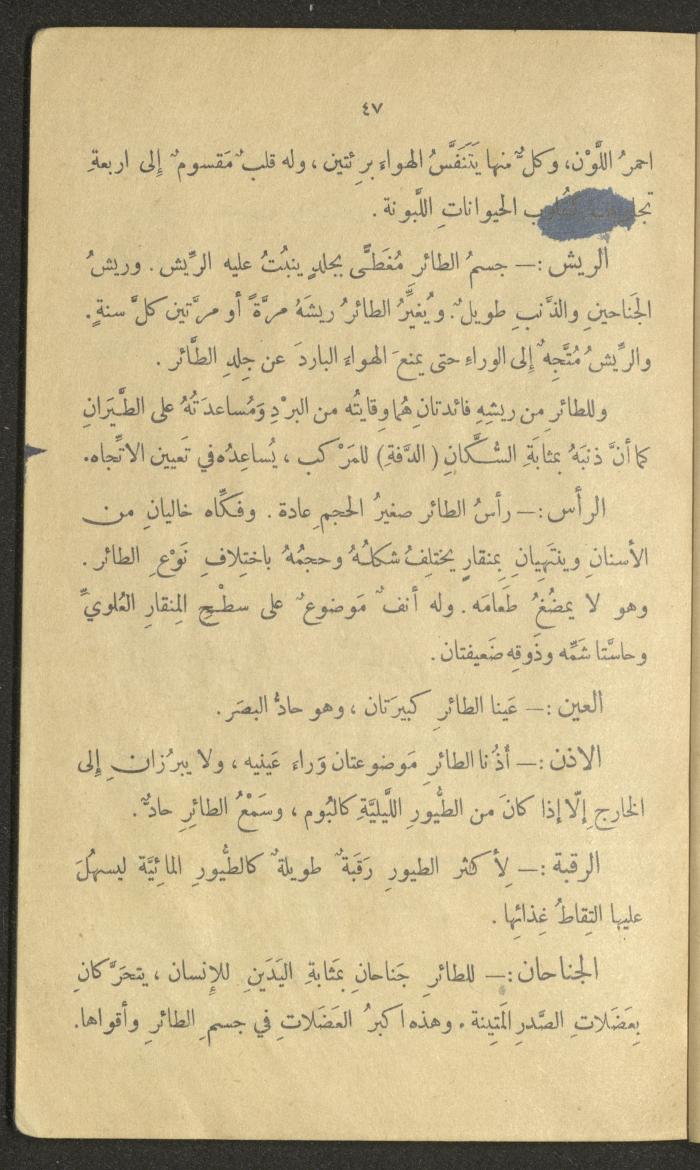 ٤٧
احمرُ اللَّوْن، وكلٌّ منها يَتَنَفَّسُ الهواءَ برِئتين، وله قلبٌ مَقسومٌ إِلى اربعةِ
الحيواناتِ اللَّبونة.
الريش :— جسمُ الطائرِ مُغَطًّى بجلدٍ ينبُتُ عليه الرِّيش. وريشُ
الجَناحينِ والذَّنبِ طويلٌ. ويُغيِّرُ الطائرُ ريشَهُ مرَّةً أو مرَّتين كلَّ سنةٍ.
والرِّيشُ مُتَّجِهٌ إِلى الوراءِ حتى يمنعَ الهواءَ الباردَ عن جِلدِ الطَّائر.
وللطائرِ من ريشِهِ فائدتانِ هُما وِقايتُه من البرْدِ وَمُساعدَتُهُ على الطَّيَرَانِ
كما أنَّ ذنبَهُ بمثابَةِ السُّكَّانِ (الدفَّةِ) للمَرْكب، يُساعِدُه في تَعيين الاتِّجاه.
الرأس :— رأسُ الطائر صغيرُ الحجم عادة. وفكَّاه خاليانِ من
الأسنانِ وينتَهِيانِ بِمنقارٍ يختلِفُ شكلُهُ وحجمُهُ باختِلافِ نَوْعِ الطائر.
وهو لا يمضُغُ طَعامَه. وله أنفٌ مَوضوعٌ على سطْحِ المِنقارِ العُلويِّ
وحاسَّتا شَمِّه وذَوقِه ضَعيفتان.
العين :— عَينا الطائرِ كبيرَتان، وهو حادُّ البصَر.
الاذن :— أذُنا الطائرِ مَوضوعتان وَراء عَينيه، ولا يبرُزانِ إِلى
الخارج إِلّا إذا كانَ من الطُّيورِ اللَّيليَّةِ كالبُوم، وسَمْعُ الطائرِ حادٌّ.
الرقبة :— لِأكثر الطيورِ رَقبَةٌ طويلةٌ كالطُّيورِ المائِيَّة ليسهُلَ
عليها التِقاطُ غِذائِها.
الجناحان :— للطائرِ جَناحانِ بمَثابةِ اليَدَينِ للإِنسان، يتحَرَّكانِ
بِعَضَلاتِ الصَّدرِ المَتِينة. وهذه اكبرُ العَضَلاتِ في جسمِ الطائرِ وأقواها.